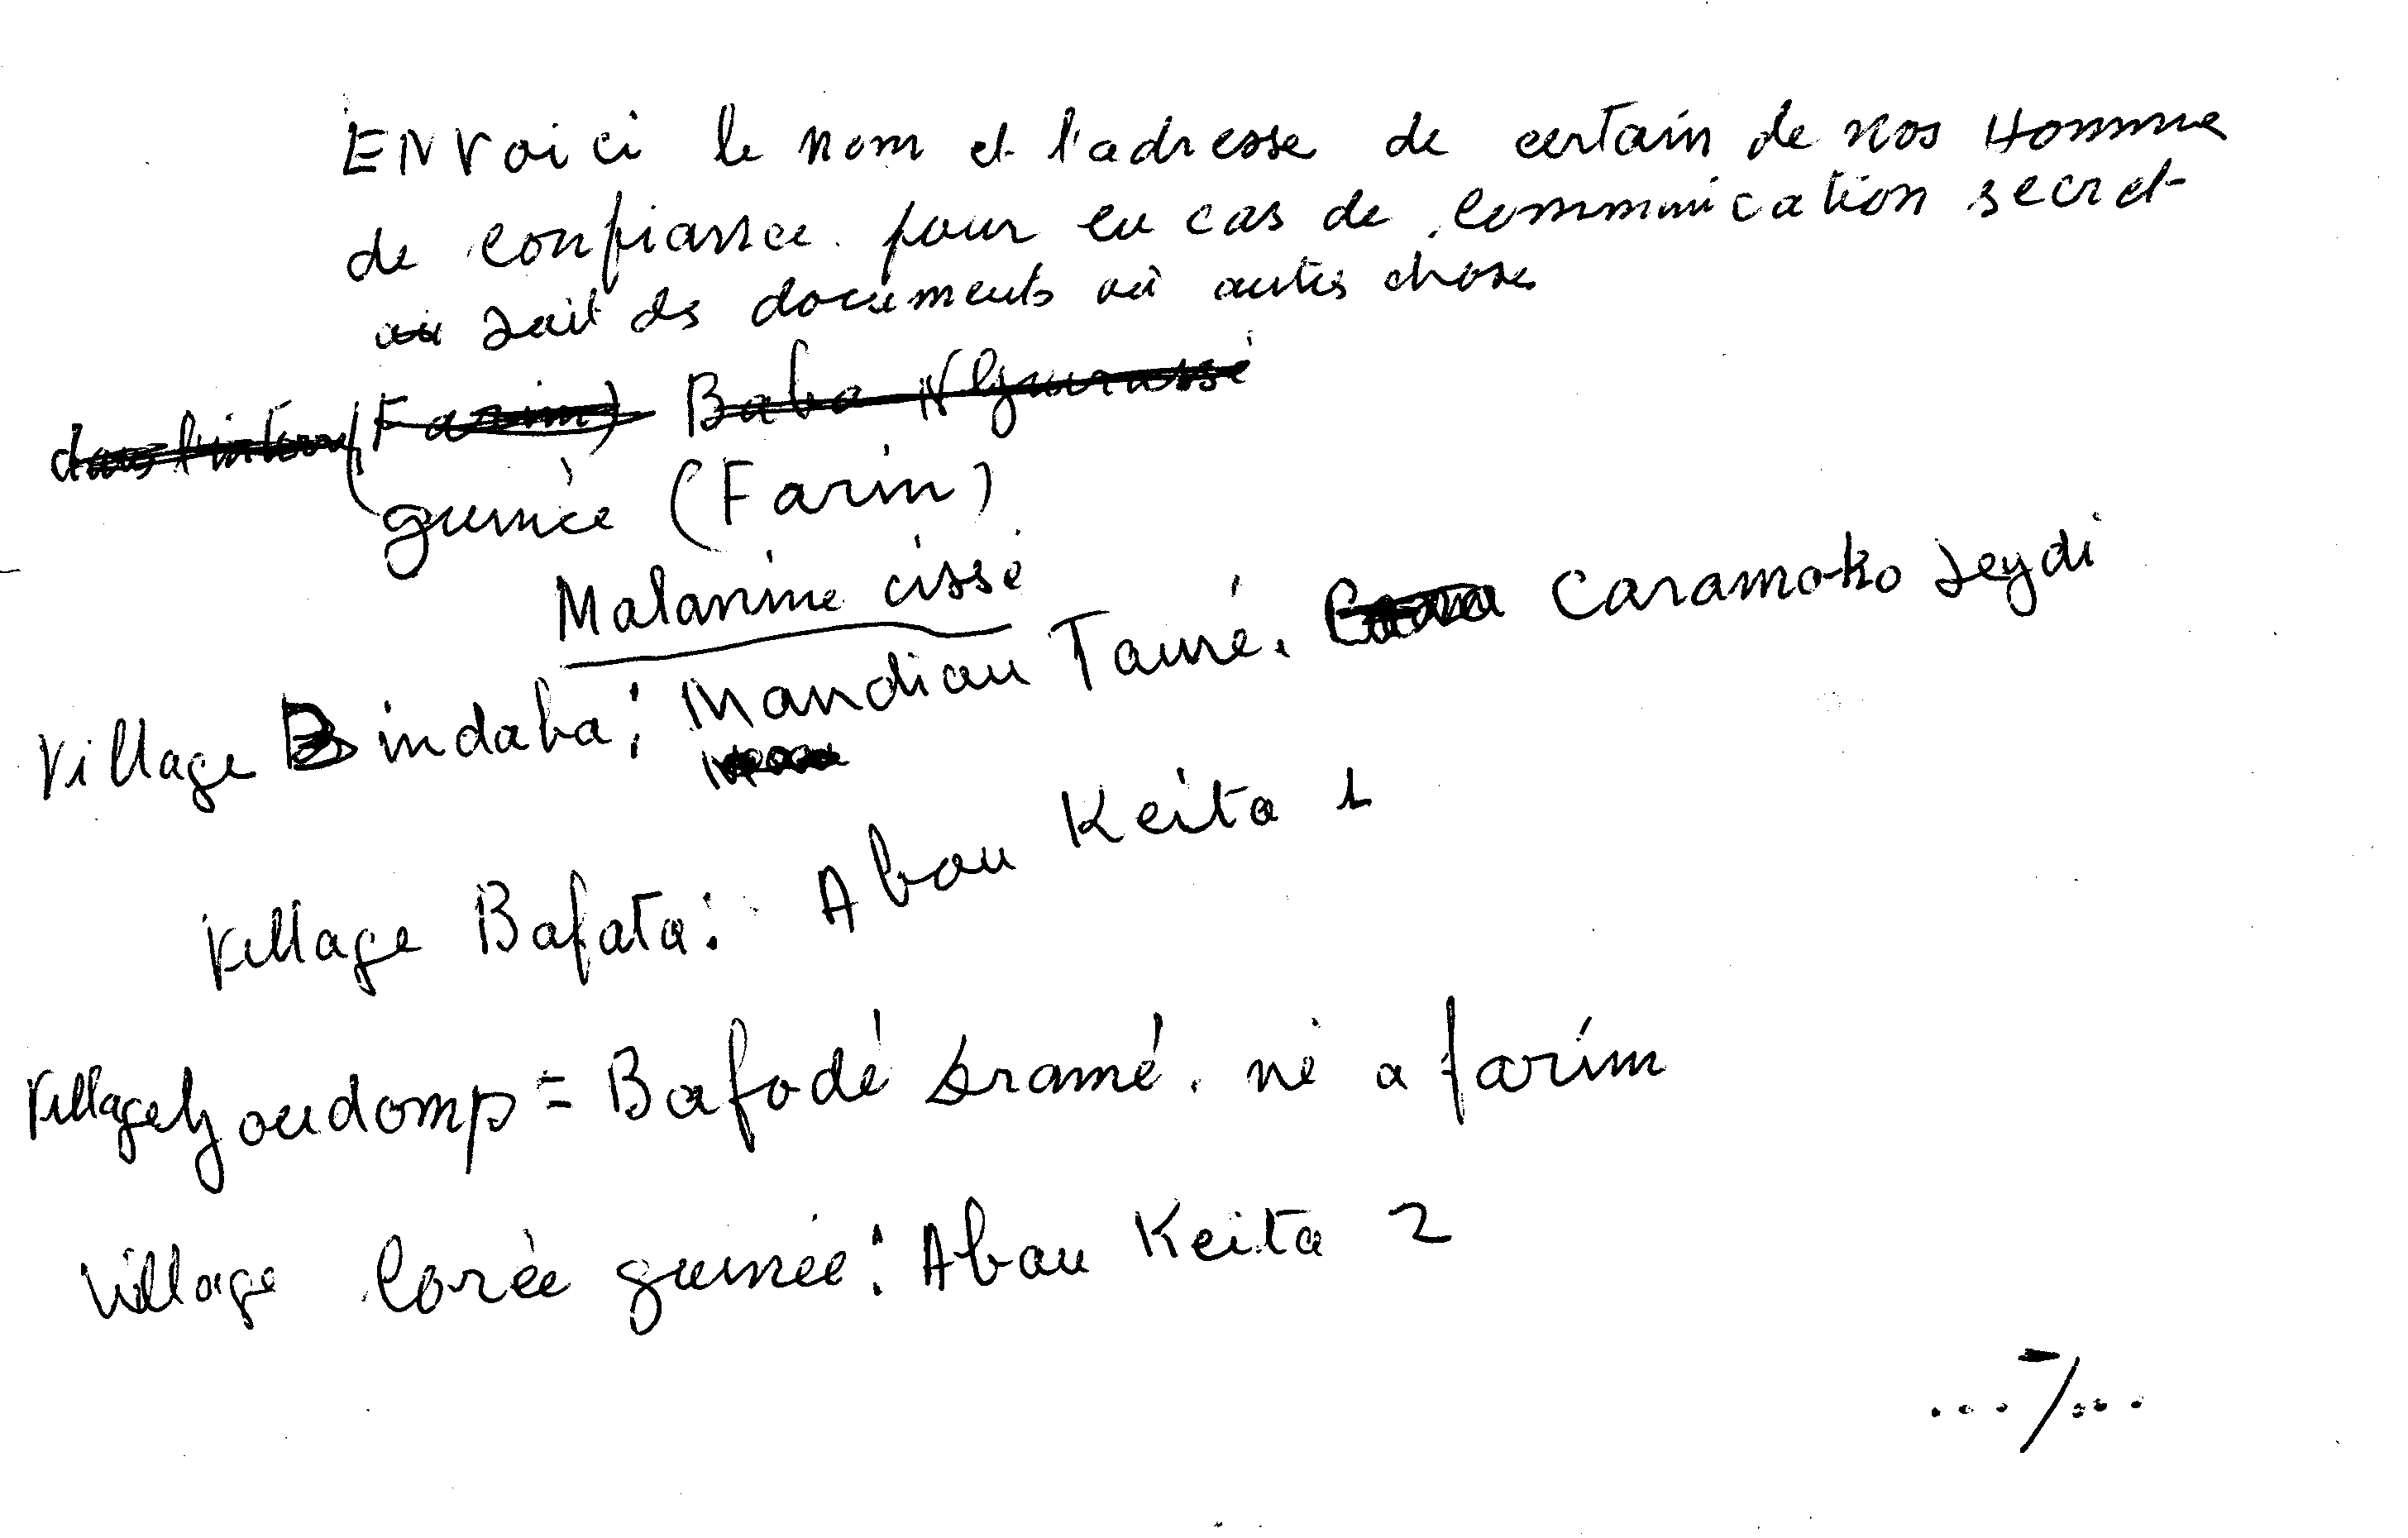 ENVoici le nom et l'adresse de certain de nos Homme
de confiance pour eu cas de communication secret
où soit ds documents où autres choses
dans l'intern (Farim) Baba N'Gurassé
guinée (Farin)
Malanine cissé
Village Bindaba: Mandiau Tauré. Caramoko Seydi
Village Bafata: Abou Keita 1
Village Goudomp = Bafodé Dramé. né a farim
Village Corée guinée: Abou Keita 2
.../...